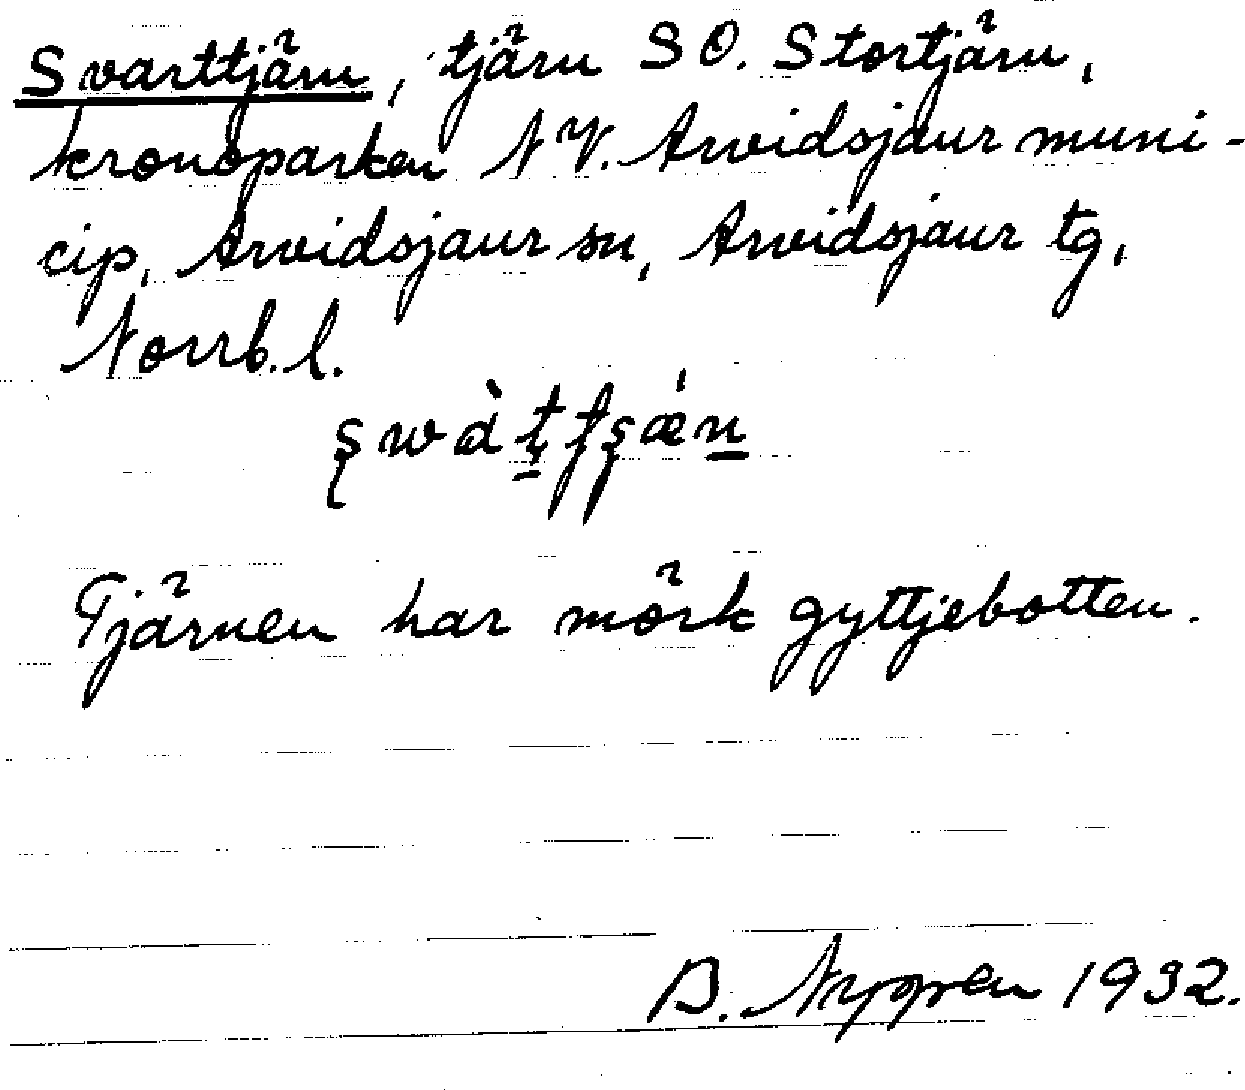 Svarttjärn, tjärn SO. Stortjärn,
kronoparken NV. Arvidsjaur muni-
cip, Arvidsjaur sn, Arvidsjaur tg,
Norrb. l.
Tjärnen har mörk gyttjebotten.
B. 1932.